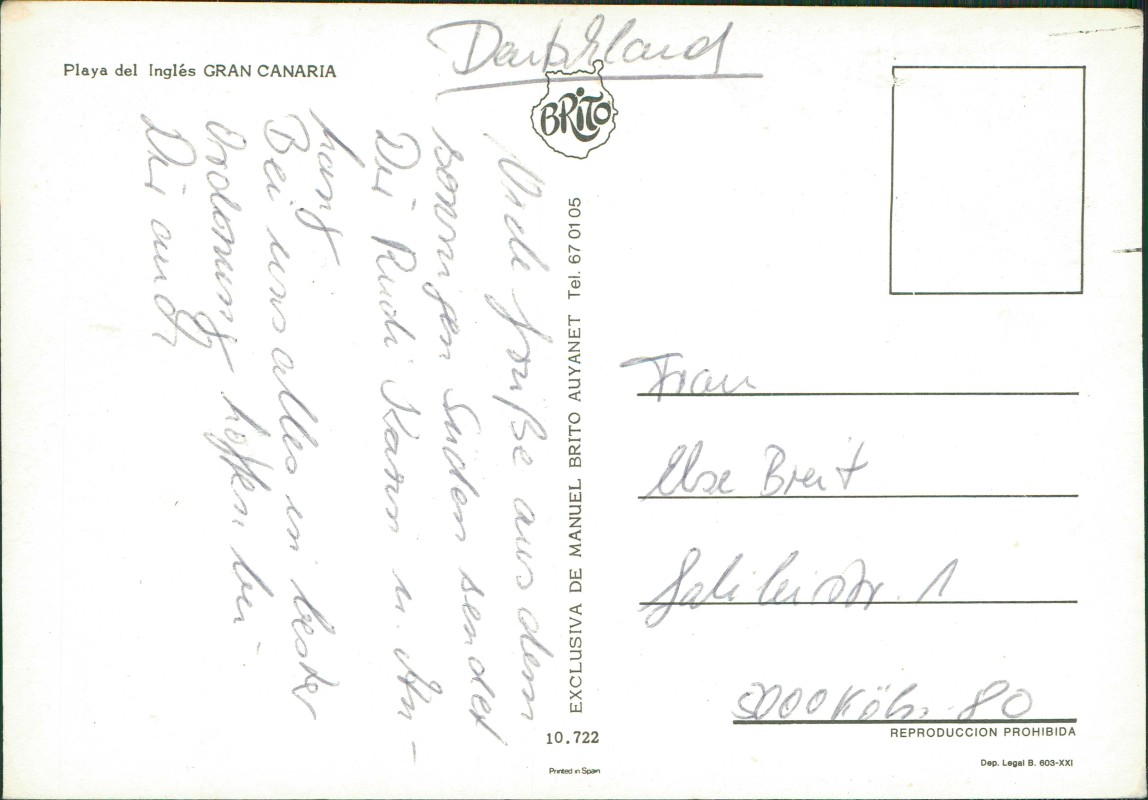 Playa del Inglés GRAN CANARIA
Deutschland
BRITO
Viele Grüße aus dem
sonnigen Süden sendet
Dir Rudi Karin u. An-
hang
Bei uns alles in bester
Ordnung hoffen bei
Dir auch
EXCLUSIVA DE MANUEL BRITO AUYANET Tel. 67 01 05
Frau
Else Breit
Galileistr. 1
5000 Köln 80
REPRODUCCION PROHIBIDA
10.722
Printed in Spain
Dep. Legal B. 603-XXI